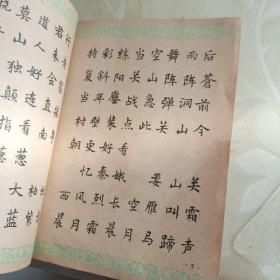 晓莫道君行
山人未老
独好会昌
颠连直接
指看南粤
葱葱
大柏地
蓝紫
持彩练当空舞雨后
复斜阳关山阵阵苍
当年鏖战急弹洞前
村壁装点此关山今
朝更好看
忆秦娥 娄山关
西风烈长空雁叫霜
晨月霜晨月马蹄声
7